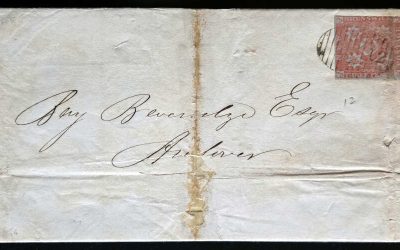 Bery Beveridge Esqr
12
Andover